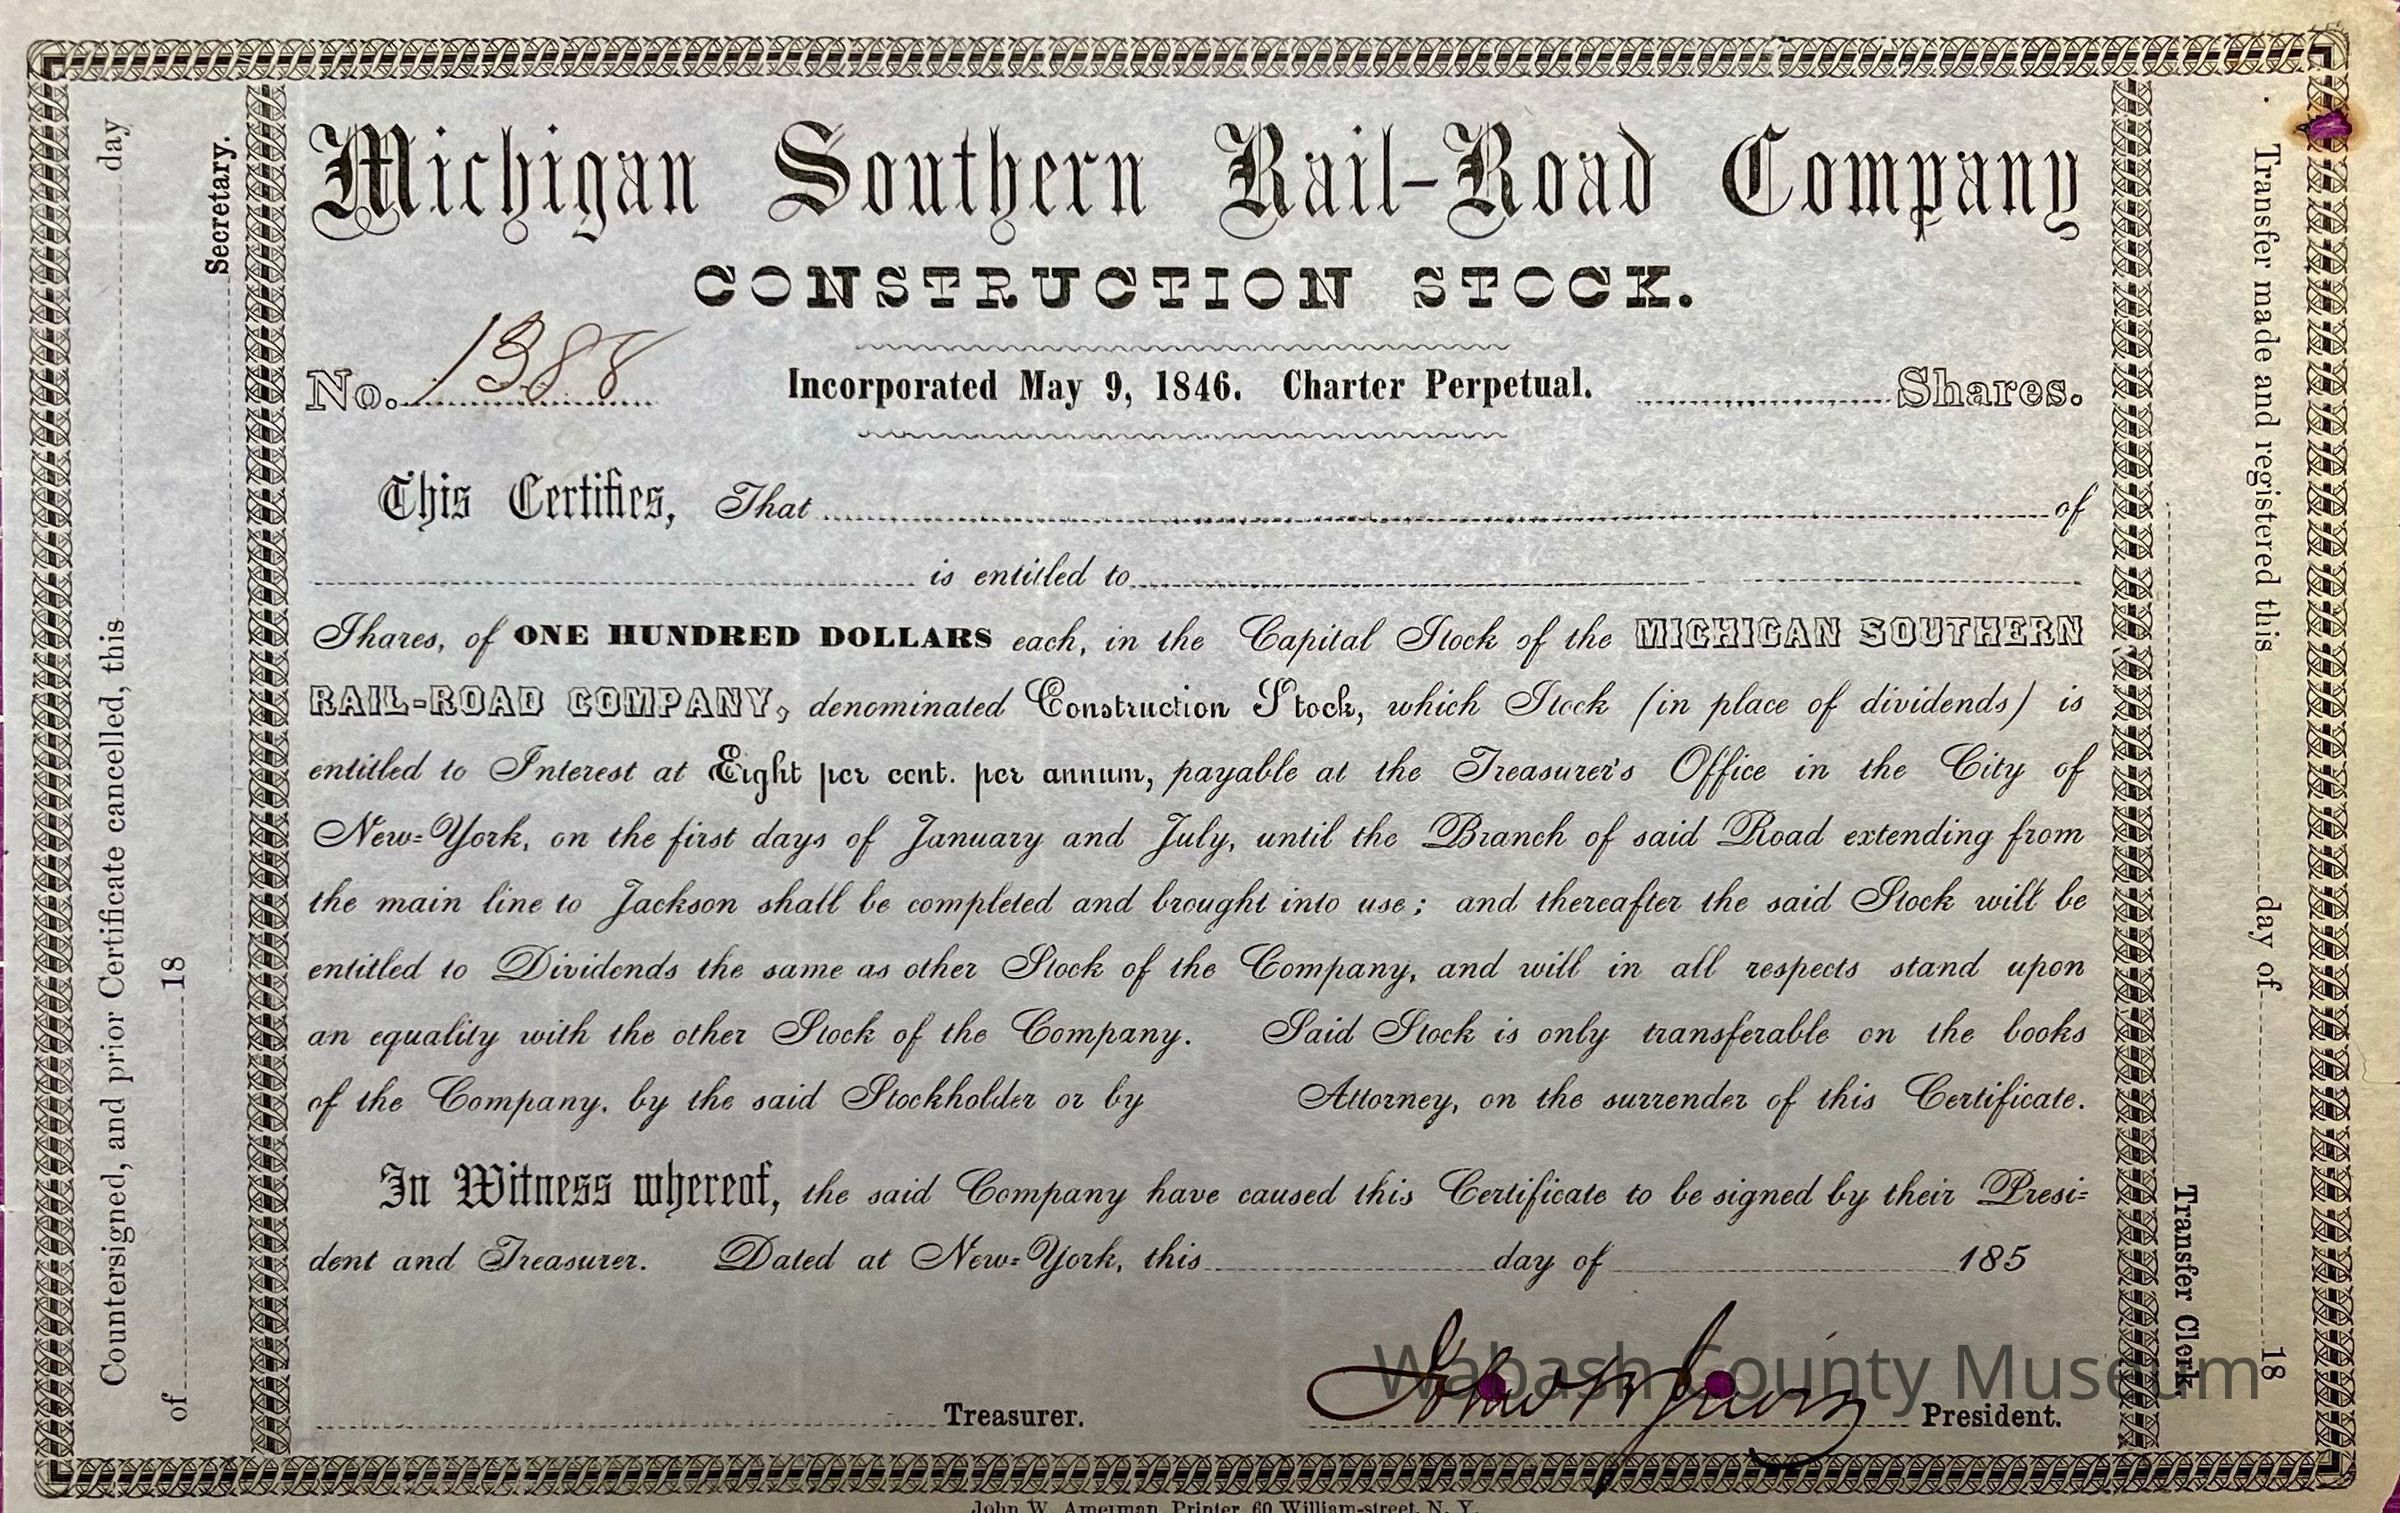 Michigan Southern Rail-Road Company
CONSTRUCTION STOCK.
No. 1388
Incorporated May 9, 1846. Charter Perpetual.
Shares.
This Certifies, That of
is entitled to
Shares, of ONE HUNDRED DOLLARS each, in the Capital Stock of the MICHIGAN SOUTHERN
RAIL-ROAD COMPANY, denominated Construction Stock, which Stock (in place of dividends) is
entitled to Interest at Eight per cent. per annum, payable at the Treasurer's Office in the City of
New-York, on the first days of January and July, until the Branch of said Road extending from
the main line to Jackson shall be completed and brought into use; and thereafter the said Stock will be
entitled to Dividends the same as other Stock of the Company, and will in all respects stand upon
an equality with the other Stock of the Company. Said Stock is only transferable on the books
of the Company, by the said Stockholder or by Attorney, on the surrender of this Certificate.
In Witness whereof, the said Company have caused this Certificate to be signed by their Presi-
dent and Treasurer. Dated at New-York, this day of 185
Treasurer.
John
President.
John W. Amerman, Printer, 60 William-street, N. Y.
Countersigned, and prior Certificate cancelled, this day
of 18
Secretary.
Transfer made and registered this day of 18
Transfer Clerk.
Wabash County Museum